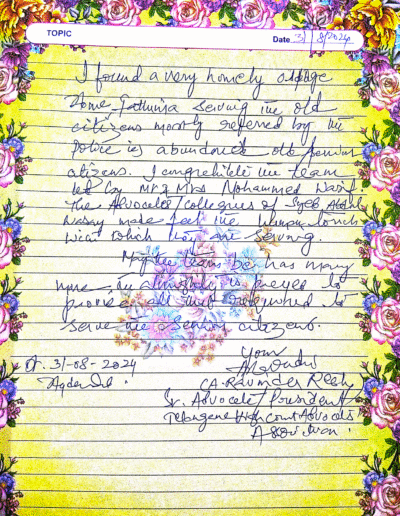 TOPIC
Date 31/8/2024
I found a very homely oldage
Home, Fathima serving the old
citizens mostly referred by the
police is abundanied old senior
citizens. I congratulate the team
led by Mr & Mrs Mohammed Wasi.
The Advocate/collegues of Syed Abdul
made feel the human touch
with which they are serving.
May the team be has many
more, the almighty is preyed to
provide all that required to
serve the senior citizens.
Dt. 31-08-2024
Hyderabad.
Your
(A. Ravinder Reddy)
Sr. Advocate/President
Telangana High Court Advocates
Association.